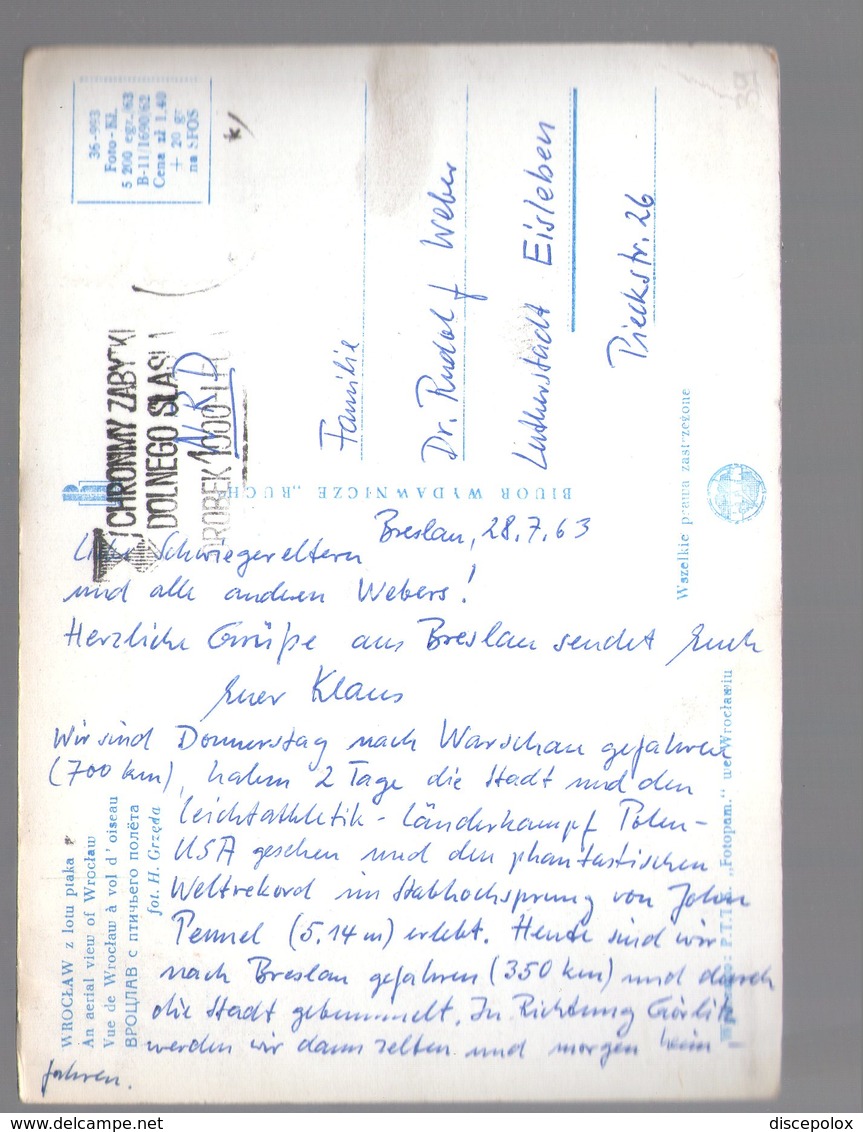 36-993
Foto-Kł.
5 200 egz./63
B-11/1690/62
Cena zł 1.40
+ 20 gr
na SFOS
39
CHROŃMY ZABYTKI
DOLNEGO ŚLĄS
DOROBEK 1000
NRD
Familie
Dr. Rudolf Weber
Lutherstadt Eisleben
Pieckstr. 26
BIURO WYDAWNICZE „RUCH
Wszelkie prawa zastrzeżone
Breslau, 28.7.63
Liebe Schwiegereltern
und alle anderen Webers!
Herzliche Grüße aus Breslau sendet Euch
Euer Klaus
Wir sind Donnerstag nach Warschau gefahren
(700 km), haben 2 Tage die Stadt und den
Leichtathletik-Länderkampf Polen-
USA gesehen und den phantastischen
Weltrekord im Stabhochsprung von John
Pennel (5,14 m) erlebt. Heute sind wir
nach Breslau gefahren (350 km) und durch
die Stadt gebummelt. In Richtung Görlitz
werden wir dann zelten und morgen heim
fahren.
WROCŁAW z lotu ptaka
An aerial view of Wrocław
Vue de Wrocław à vol d'oiseau
ВРОЦЛАВ с птичьего полёта
fot. H. Grzęda
P.T.T.K. „Fotopam." we Wrocławiu
delcampe.net
discepolox